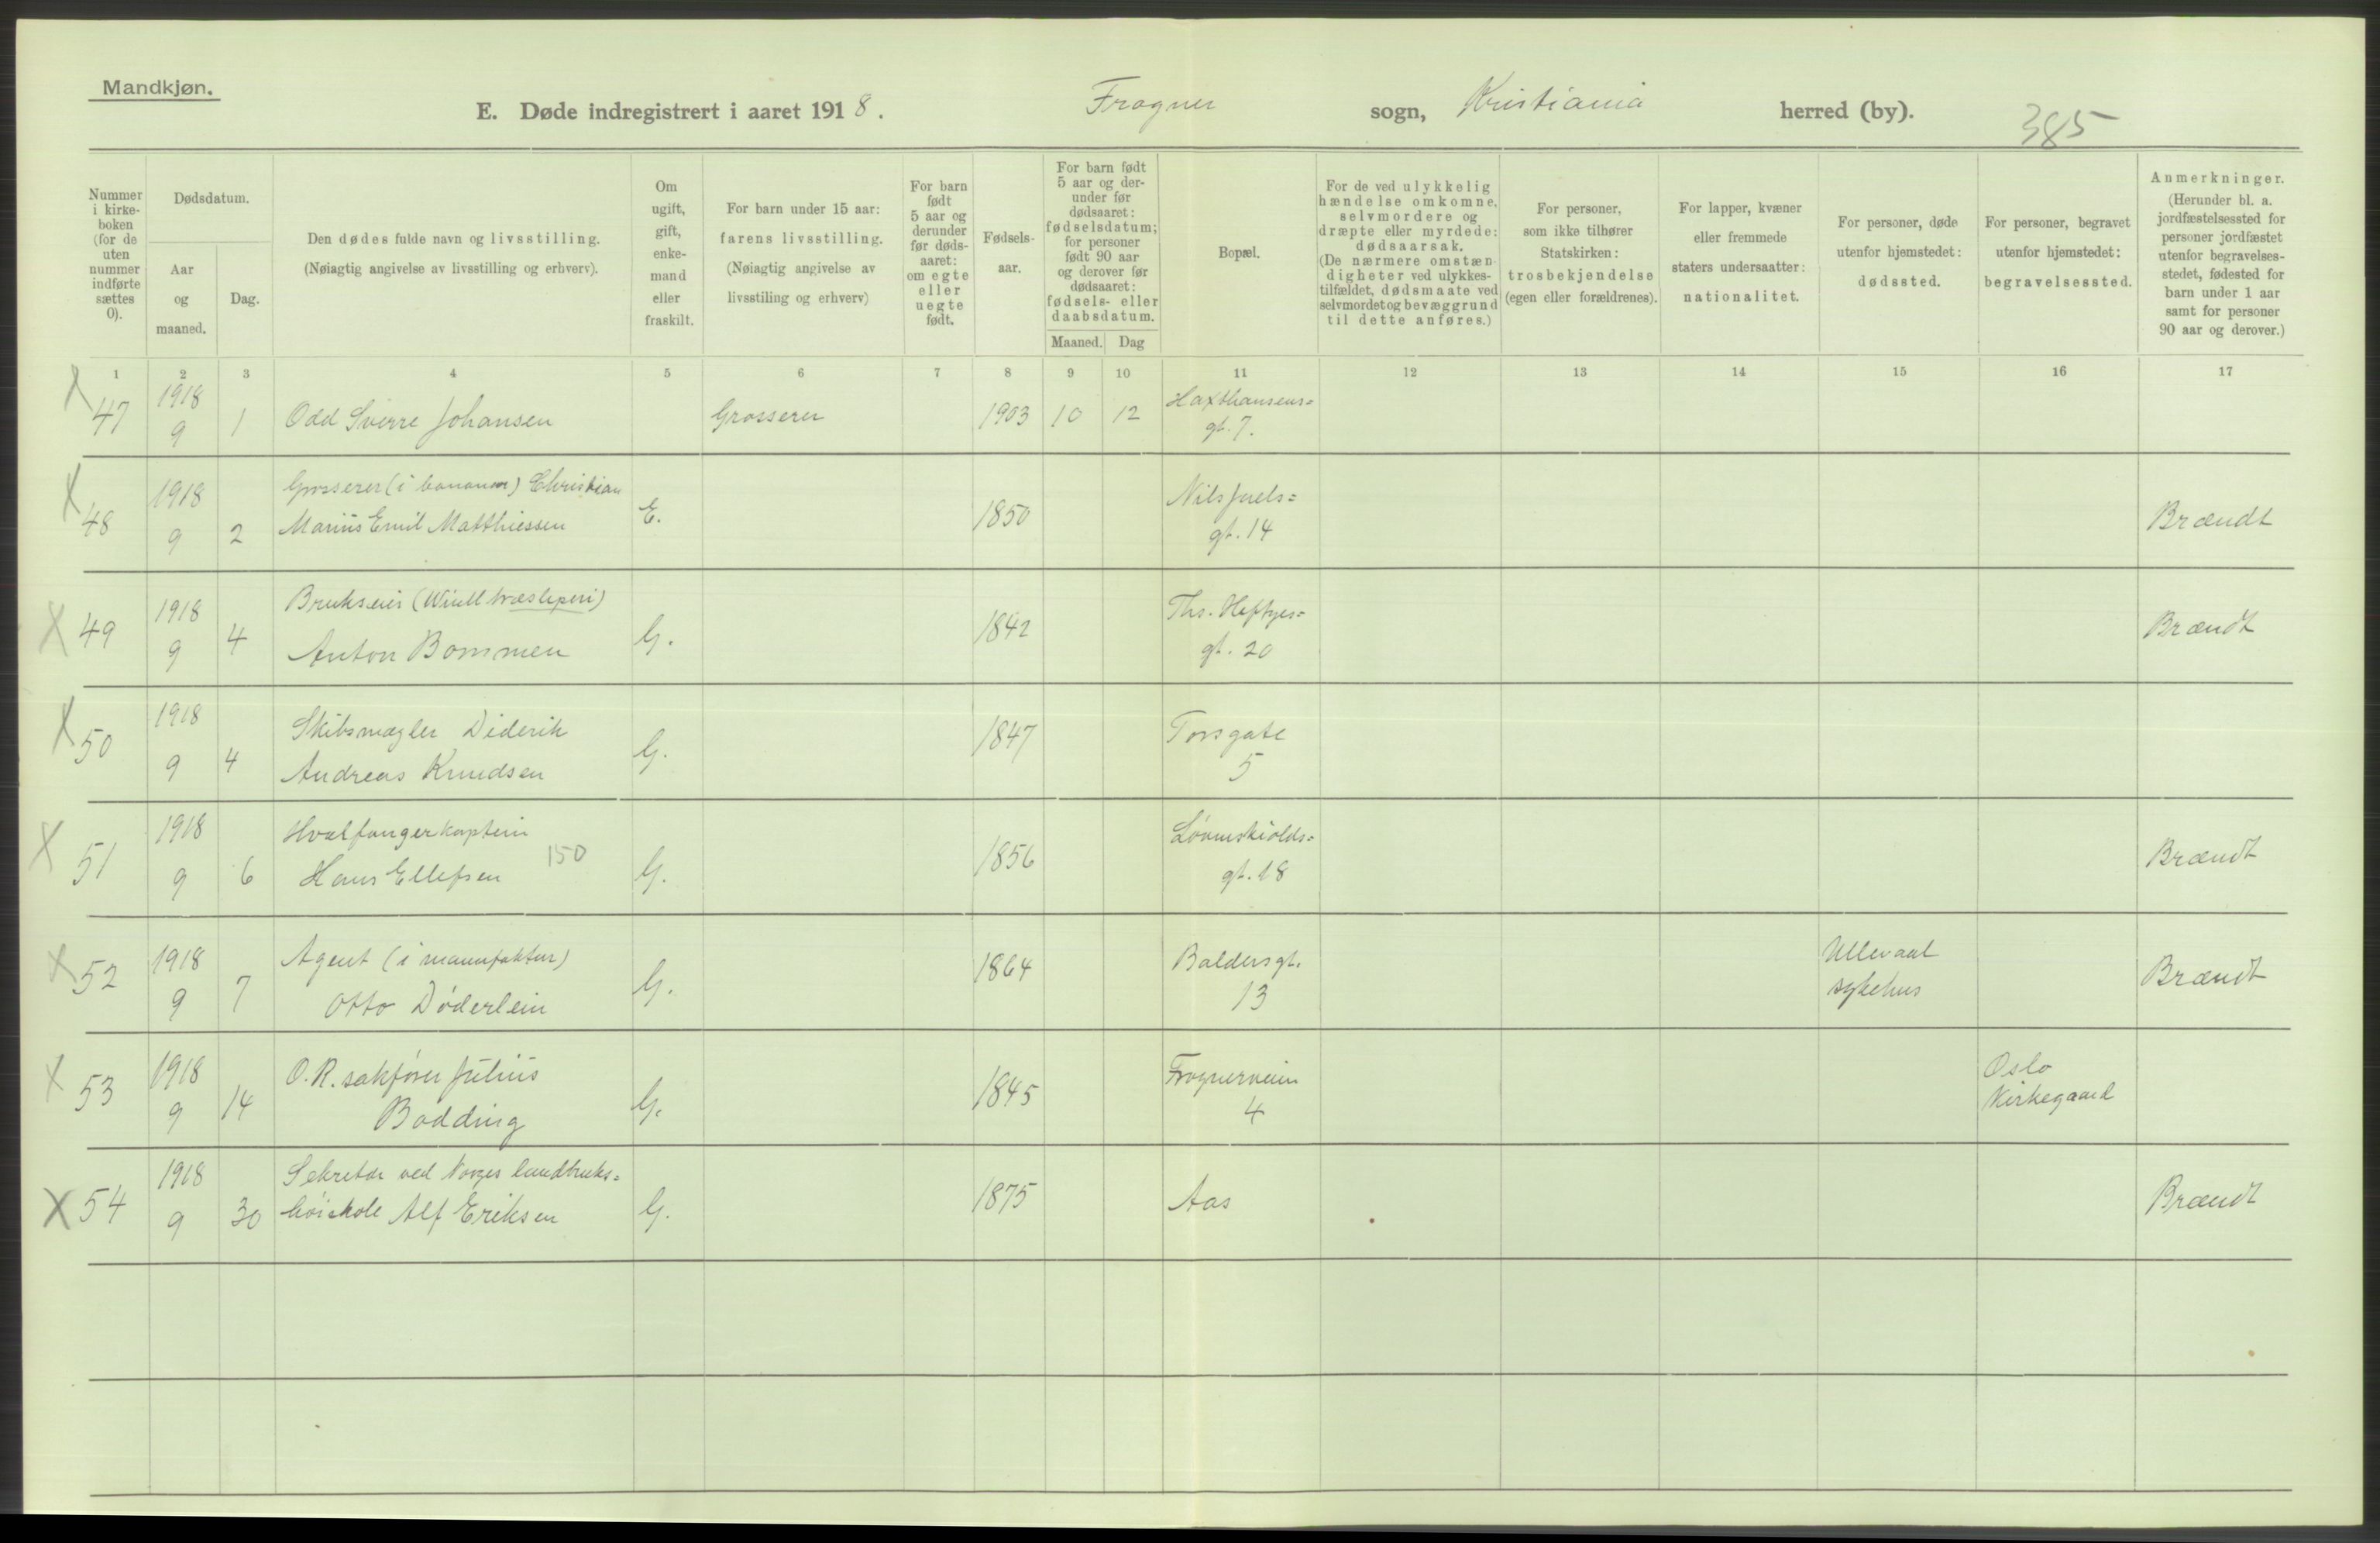 Mandkjøn.
E. Døde indregistrert i aaret 1918. Frogner sogn, Kristiania herred (by). 385
Nummer i kirke-boken (for de uten nummer indførte sættes 0).
Dødsdatum.
Aar og maaned.
Dag.
Den dødes fulde navn og livsstilling.
(Nøiagtig angivelse av livsstilling og erhverv).
Om ugift, gift, enke-mand eller fraskilt.
For barn under 15 aar: farens livsstilling.
(Nøiagtig angivelse av livsstiling og erhverv)
For barn født 5 aar og derunder før døds-aaret: om egte eller uegte født.
Fødsels-aar.
For barn født 5 aar og der-under før dødsaaret: fødselsdatum; for personer født 90 aar og derover før dødsaaret: fødsels- eller daabsdatum.
Maaned. Dag
Bopæl.
For de ved ulykkelig hændelse omkomne, selvmordere og dræpte eller myrdede: dødsaarsak.
(De nærmere omstæn-digheter ved ulykkes-tilfældet, dødsmaate ved selvmordet og bevæggrund til dette anføres.)
For personer, som ikke tilhører Statskirken: trosbekjendelse (egen eller forældrenes).
For lapper, kvæner eller fremmede staters undersaatter: nationalitet.
For personer, døde utenfor hjemstedet: dødssted.
For personer, begravet utenfor hjemstedet: begravelsessted.
Anmerkninger.
(Herunder bl. a. jordfæstelsessted for personer jordfæstet utenfor begravelses-stedet, fødested for barn under 1 aar samt for personer 90 aar og derover.)
1 2 3 4 5 6 7 8 9 10 11 12 13 14 15 16 17
X 47 1918 9 1 Odd Sverre Johansen Grosserer 1903 10 12 Haxthausens=
gt. 7.
X 48 1918 9 2 Grosserer (i ) Christian
Marius Emil Matthiessen E. 1850 Nils Juels=
gt. 14 Brændt
X 49 1918 9 4 Brukseier (træsliperi)
Anton Bommen G. 1842 Ths. Heftyes=
gt. 20 Brændt
X 50 1918 9 4 Skibsmægler Diderik
Andreas Knudsen G. 1847 Torsgate
5
X 51 1918 9 6 Hvalfangerkaptein
Hans Ellefsen 150 G. 1856 Løvenskiolds=
gt. 18 Brændt
X 52 1918 9 7 Agent (i manufaktur)
Otto Døderlein G. 1864 Baldersgt.
13 Ullevaal
sykehus Brændt
X 53 1918 9 14 O.R. sakfører Julius
Bødding G. 1845 Frognerveien
4 Oslo
Kirkegaard
X 54 1918 9 30 Sekretær ved Norges landbruks=
høiskole Alf Eriksen G. 1875 Aas Brændt